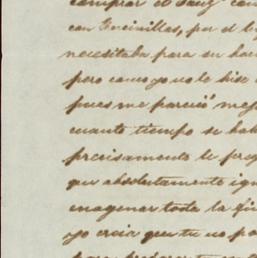 comprar el Sauz con
con Encinillas, por el
necesitaba para su hac
pero como yo no le hise
pues me pareció mej
cuanto tiempo se hab
precisamente le preg
que absolutamente ign
imagenar toda la fin
yo creia que tu no po